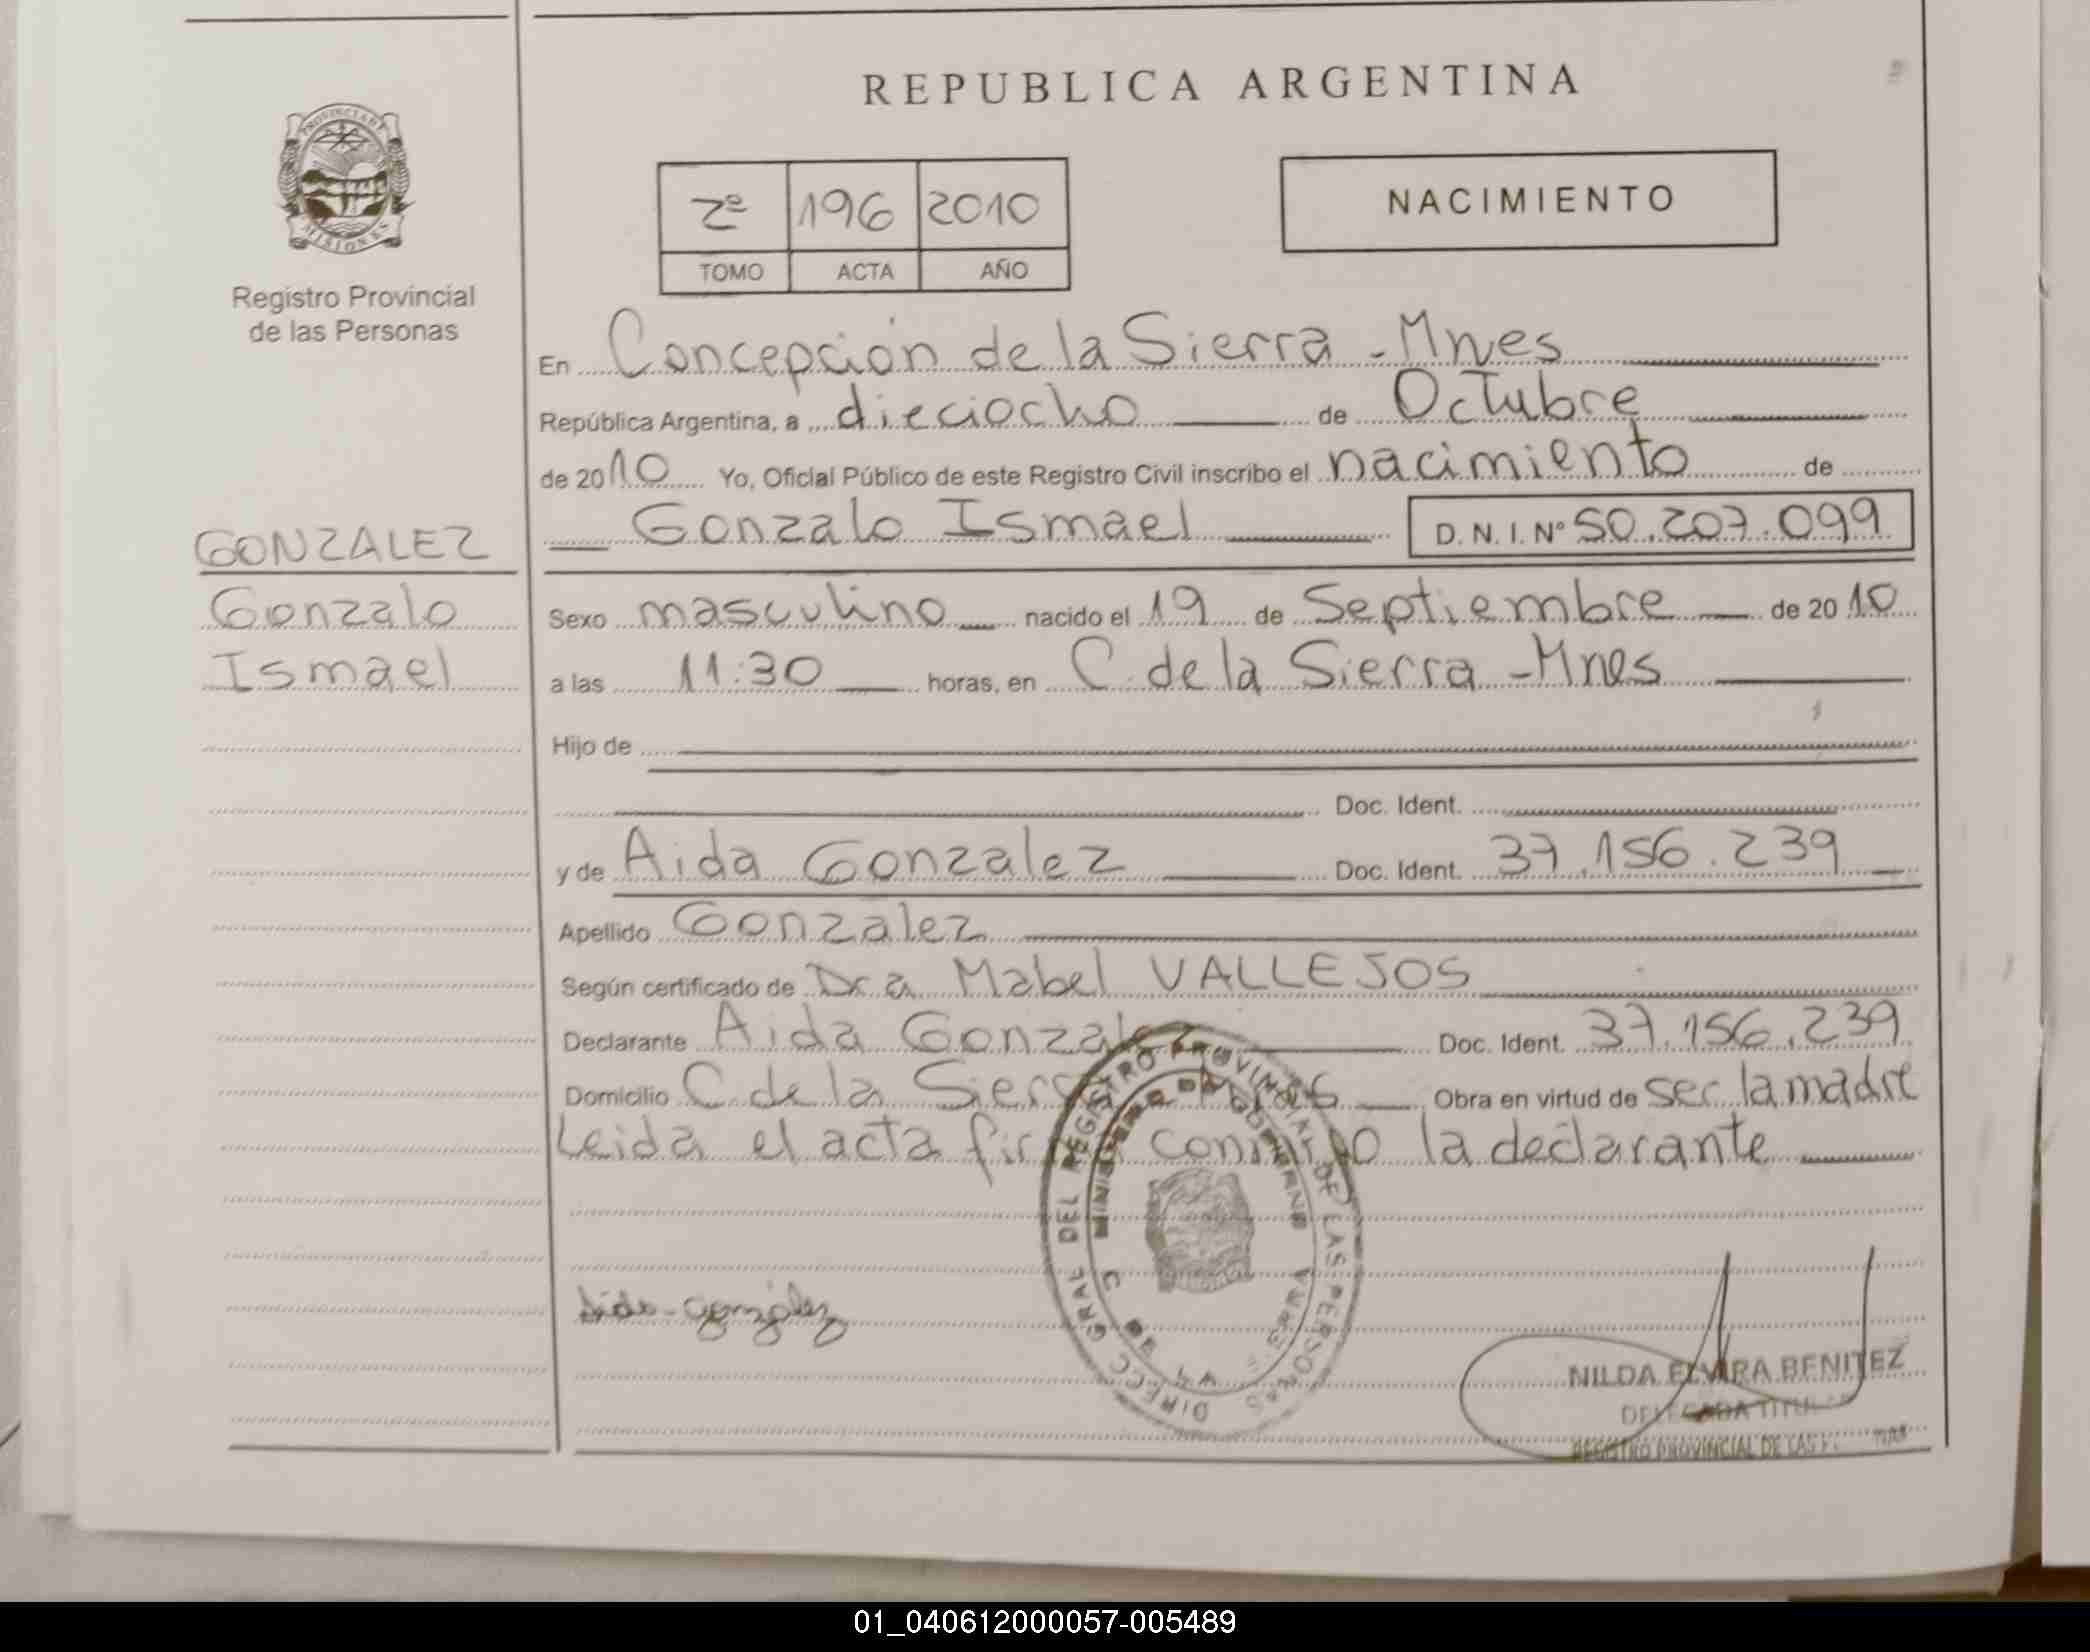 REPUBLICA ARGENTINA
PROVINCIA DE
MISIONES
Registro Provincial
de las Personas
2º 196 2010
TOMO ACTA AÑO
NACIMIENTO
En Concepción de la Sierra - Mnes
República Argentina, a dieciocho de Octubre
de 2010 Yo, Oficial Público de este Registro Civil inscribo el nacimiento de
Gonzalo Ismael D.N.I. Nº 50.207.099
GONZALEZ
Gonzalo
Ismael
Sexo masculino nacido el 19 de Septiembre de 2010
a las 11:30 horas, en C. de la Sierra - Mnes
Hijo de
Doc. Ident.
y de Aida Gonzalez Doc. Ident. 37.156.239
Apellido Gonzalez
Según certificado de Dra Mabel VALLEJOS
Declarante Aida Gonzalez Doc. Ident. 37.156.239
Domicilio C. de la Sierra Mnes Obra en virtud de ser la madre
Leida el acta firma conmigo la declarante
DIRECC GRAL DEL REGISTRO PROVINCIAL DE LAS PERSONAS
MINISTERIO DE GOBIERNO
Aida Gonzalez
NILDA ELVIRA BENITEZ
DELEGADA TITULAR
REGISTRO PROVINCIAL DE LAS
01_040612000057-005489